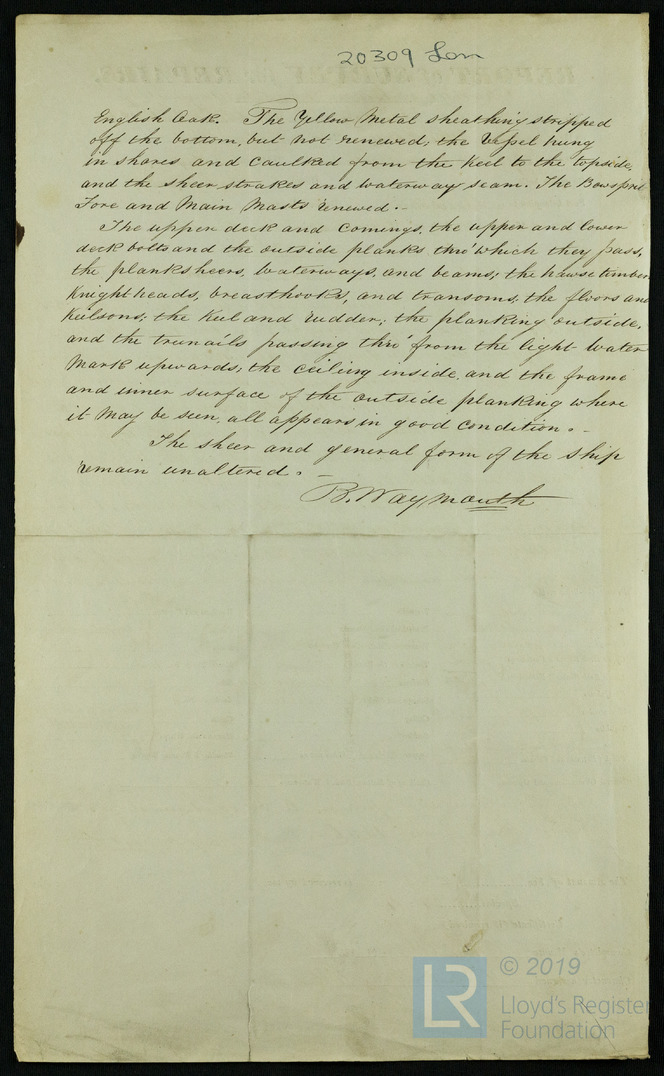 20309 Lon
English Oak. The Yellow Metal sheathing stripped
off the bottom, but not renewed; the Vessel hung
in shores and Caulked from the Keel to the topside,
and the sheerstrakes and waterway seam. The Bowsprit
Fore and Main Masts renewed.-
The upper deck and Comings, the upper and lower
deck bolts and the outside planks thro' which they pass,
the planksheers, Waterways, and beams; the hawsetimbers
Knightheads, breasthooks, and transoms, the floors and
Keilsons; the Keel and rudder; the planking outside,
and the trunails passing thro from the light Water
Mark upwards; the ceiling inside, and the frame
and inner surface of the outside planking where
it may be seen, all appears in good condition.-
The sheer and general form of the Ship
remain unaltered.-
B. Waymouth
LR
© 2019
Lloyd's Register
Foundation